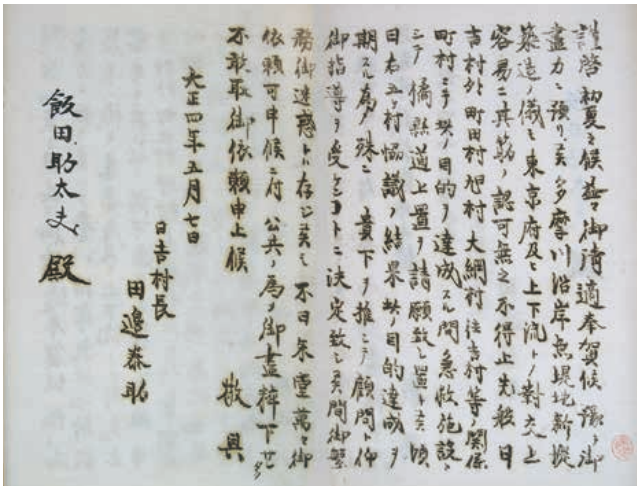 謹啓初夏之候益々御清適奉賀候陳ハ御
盡力ニ預リ候多摩川沿岸無堤地新堤
築造ノ儀ハ東京府及ヒ上下流トノ對交上
容易ニ其筋ノ認可無之不得止先般日
吉村外町田村旭村大綱村住吉村等ノ関係
町村ニテ其ノ目的ヲ達成スル間急救施設ト
シテ橘縣道上置ヲ請願致シ置キ候処
日右五ヶ村協議ノ結果其ノ目的達成ヲ
期スル為メ殊ニ貴下ヲ推シテ顧問ト仰
御指導ヲ受クルコトニ決定致シ候間御繁
務御迷惑トハ存ジ候ヘ共不日参堂萬々御
依頼可申候ニ付公共ノ為メ御盡粹下サレ度
不敢取御依頼申上候
敬具
大正四年五月七日
日吉村長
田邊泰助
飯田助太夫殿